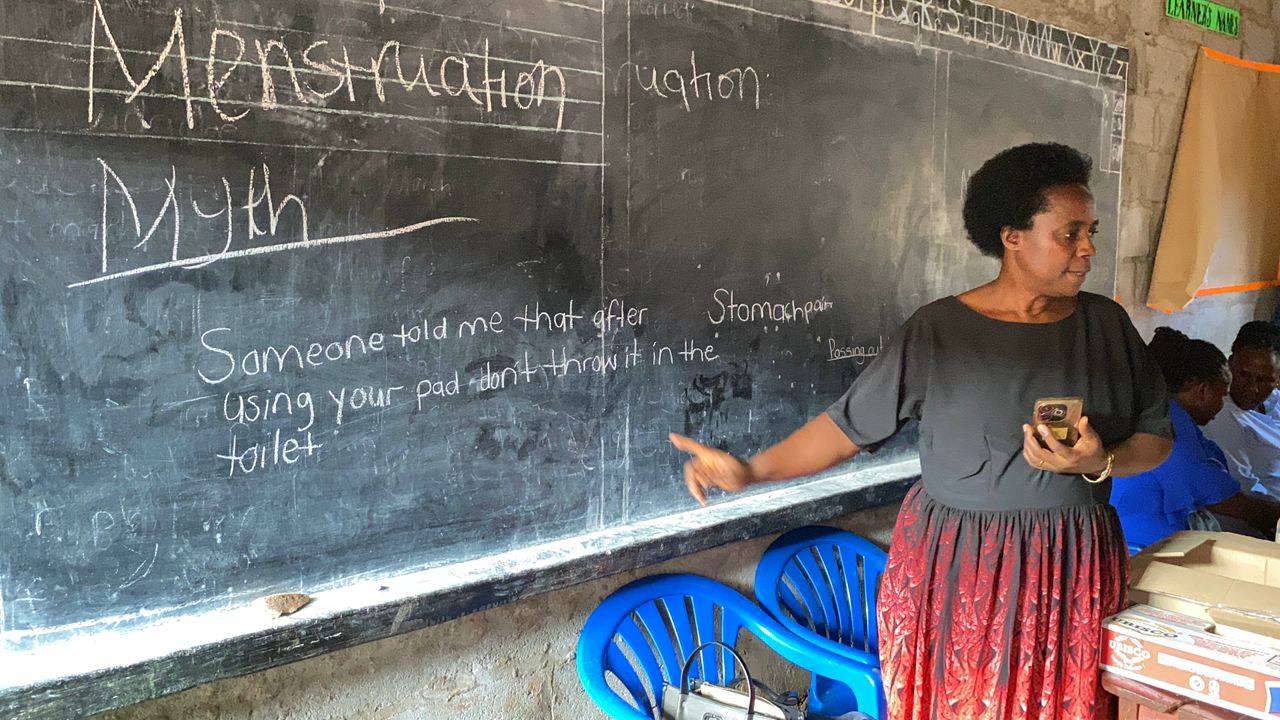 LEARNER'S NAMES
Menstruation
uation
Myth
Someone told me that after
using your pad don't throw it in the
toilet
Stomachpain
Passing out